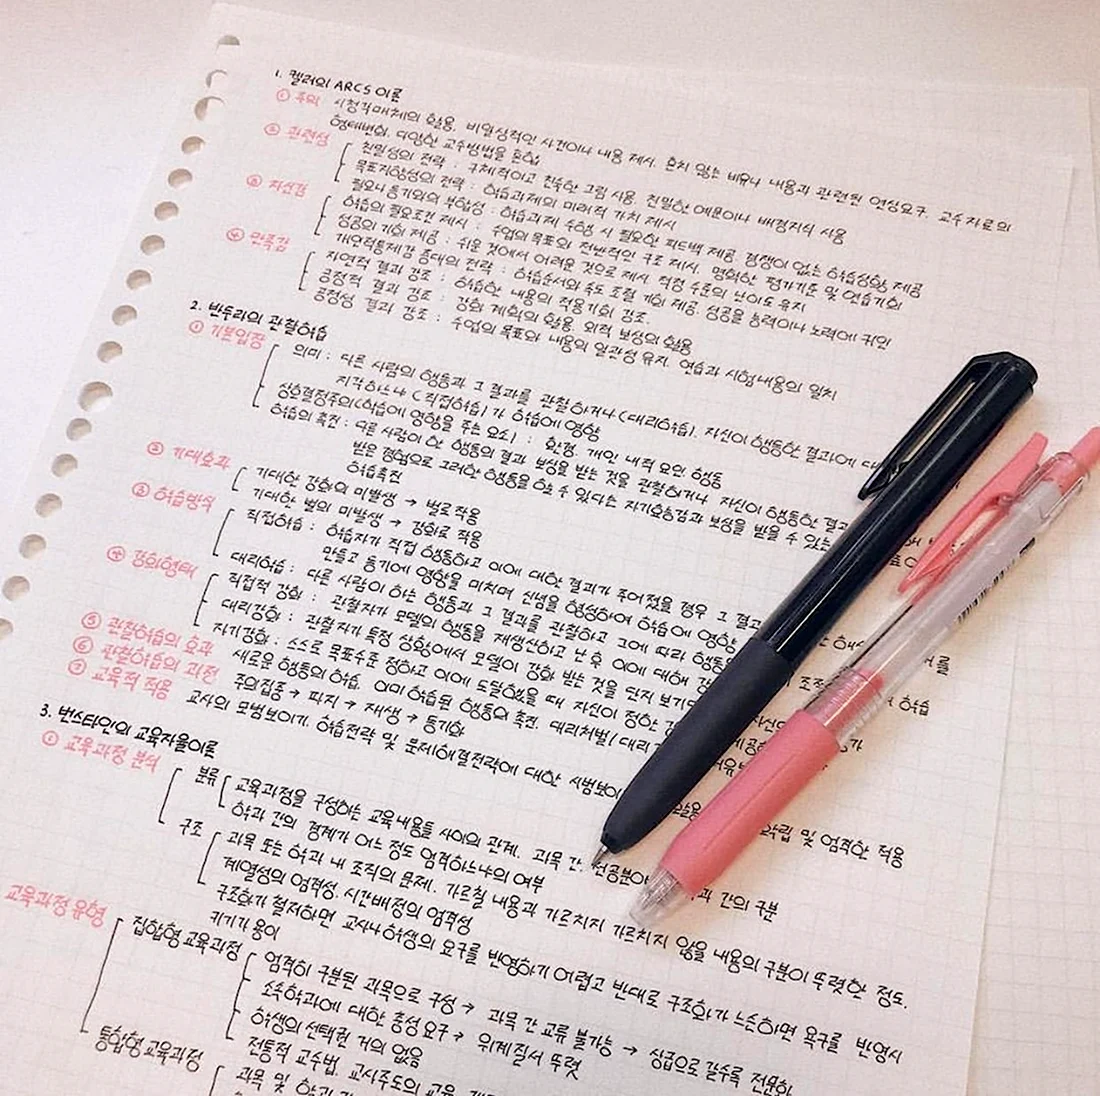 1. 켈러의 ARCS 이론
① 주의 시청각매체의 활용. 비일상적인 사건이나 내용 제시. 흔치 않는 비유나 내용과 관련된 연상요구. 교수자료의
형태변화. 다양한 교수방법을 혼합
② 관련성 친밀성의 전략 : 구체적이고 친숙한 그림 사용. 친밀한 예문이나 배경지식 사용
목표지향성의 전략 : 학습과제의 미래적 가치 제시
필요나 동기와의 부합성 : 학습과제 수행 시 필요한 피드백 제공 경쟁이 없는 학습상황 제공
③ 자신감 학습의 필요조건 제시 : 수업의 목표와 전반적인 구조 제시. 명확한 평가기준 및 연습기회
성공의 기회 제공 : 쉬운 것에서 어려운 것으로 제시. 적정 수준의 난이도 유지
개인적통제감 증대의 전략 : 학습순서와 속도 조절 기회 제공. 성공을 능력이나 노력에 귀인
④ 만족감 자연적 결과 강조 : 학습한 내용의 적용기회 강조.
긍정적 결과 강조 : 강화 계획의 활용. 외적 보상의 활용
공정성 결과 강조 : 수업의 목표와 내용의 일관성 유지. 연습과 시험내용의 일치
2. 반두라의 관찰학습
① 기본입장 의미 : 다른 사람의 행동과 그 결과를 관찰하거나 (대리학습). 자신이 행동한 결과에 대
지각하느냐 (직접학습)가 학습에 영향
상호결정주의 (학습에 영향을 주는 요소) : 환경. 개인 내적 요인. 행동
학습의 촉진 : 다른 사람이 한 행동의 결과 보상을 받는 것을 관찰하거나 자신이 행동한 결과
받은 경험으로 그러한 행동을 할 수 있다는 자기효능감과 보상을 받을 수 있는
학습촉진
② 기대효과 기대한 강화의 미발생 → 벌로 작용
기대한 벌의 미발생 → 강화로 작용
② 학습방식 직접학습 : 학습자가 직접 행동하고 이에 대한 결과가 주어졌을 경우 그 결과
만들고 동기에 영향을 미치며 신념을 형성하여 학습에 영향
대리학습 : 다른 사람이 하는 행동과 그 결과를 관찰하고 그에 따라 행동을
④ 강화형태 직접적 강화 : 관찰자가 모델의 행동을 재생산하고 난 후 이에 대해 강
대리강화 : 관찰자가 특정 상황에서 모델이 강화 받는 것을 단지 보기
자기강화 : 스스로 목표수준 정하고 이에 도달했을 때 자신이 정한
⑤ 관찰학습의 효과 새로운 행동의 학습. 이미 학습된 행동의 촉진. 대리처벌/대리
⑥ 관찰학습의 과정 주의집중 → 파지 → 재생 → 동기화
⑦ 교육적 적용 교사의 모범보이기. 학습전략 및 문제해결전략에 대한 시범보이 확립 및 엄격한 적용
3. 번스타인의 교육자율이론
① 교육과정 분석 분류 교육과정을 구성하는 교육내용들 사이의 관계. 과목 간. 전공분야 과 간의 구분
학과 간의 경계가 어느 정도 엄격하느냐의 여부
구조 과목 또는 학과 내 조직의 문제. 가르칠 내용과 가르치지 않을 내용의 구분이 뚜렷한 정도.
계열성의 엄격성. 시간배정의 엄격성
구조화가 철저하면 교사나 학생의 요구를 반영하기 어렵고 반대로 구조화가 느슨하면 욕구를 반영시
키기가 용이
교육과정 유형 집합형 교육과정 엄격히 구분된 과목으로 구성 → 과목 간 교류 불가능 → 상급으로 갈수록 전문화
소속학과에 대한 충성 요구 → 위계질서 뚜렷
학생의 선택권 거의 없음
전통적 교수법. 교사주도의 교육
통합형 교육과정 과목 및 학과